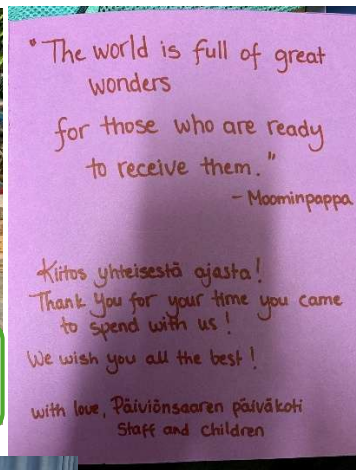 "The world is full of great
wonders
for those who are ready
to receive them."
- Moominpappa
Kiitos yhteisestä ajasta!
Thank you for your time you came
to spend with us!
We wish you all the best!
with love, Päiviönsaaren päiväkoti
Staff and children